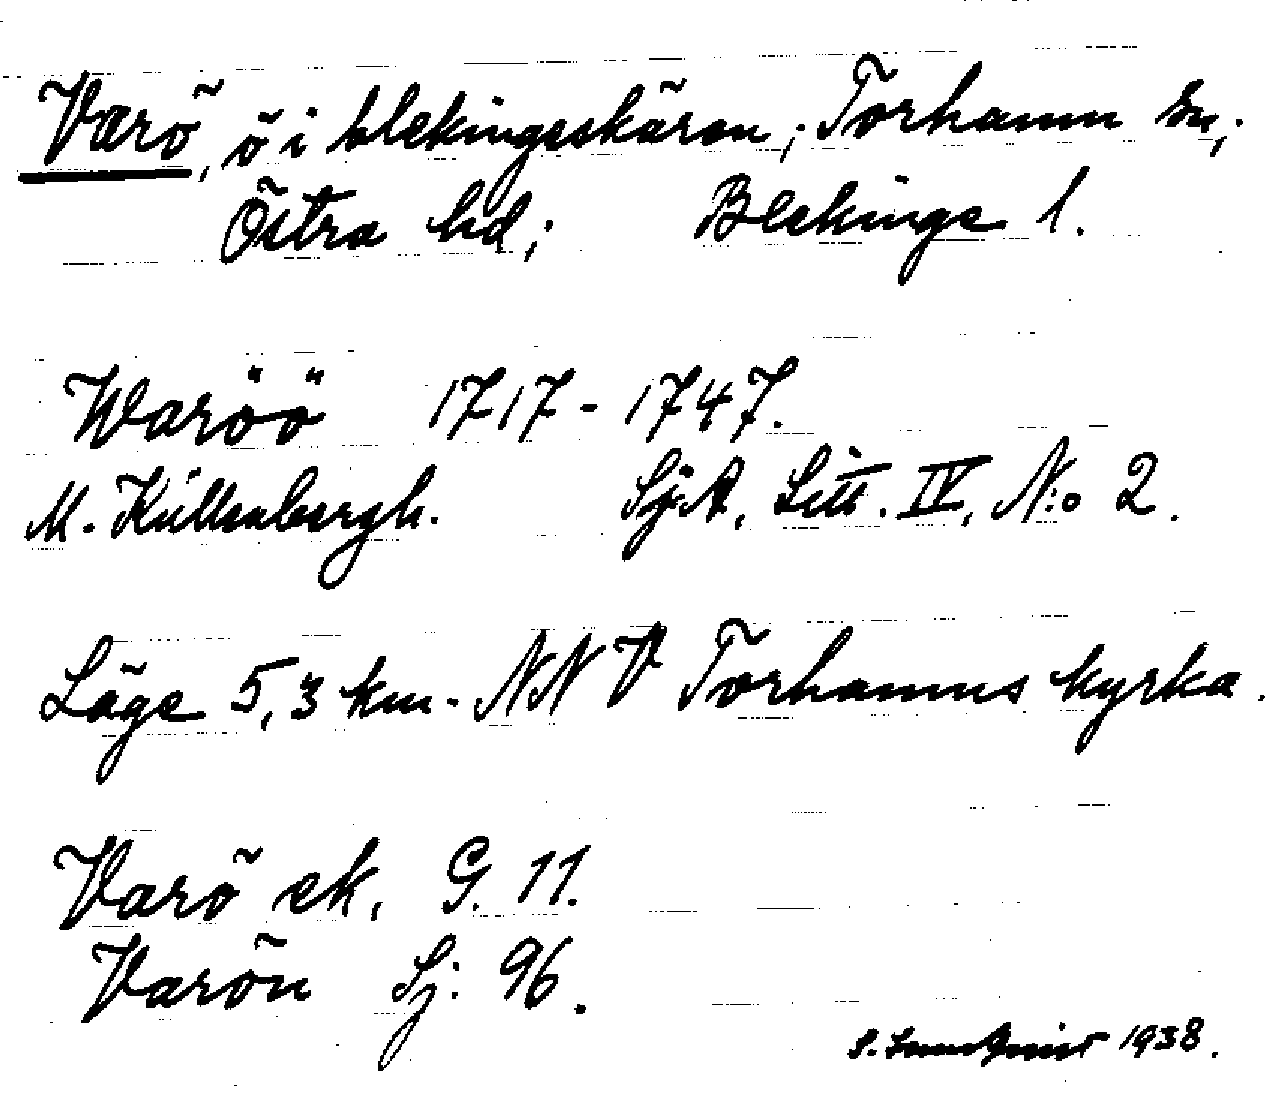 Varö, ö i blekingeskären; Torhamn sn;
Östra hd; Blekinge l.
Waröö 1717-1747.
M. Küllenbergh. Sj.A, Litt. IV, N:o 2.
Läge 5,3 km. NNV Torhamns kyrka.
Varö ek. G. 11.
Varön Sj: 96.
1938.